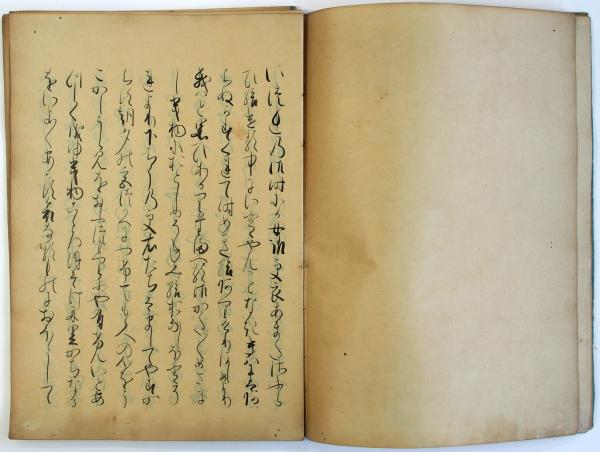 いつれの御時にか女御更衣あまたさふら
ひ給ける中にいとやんことなききはにはあ
らぬかすくれて時めき給ありけりはしめより
我はと思ひあかり給へる御かた〱めさま
しき物におとしめそねみ給おなしほとそ
れより下らうの更衣たちはましてやすか
らす朝夕の宮つかへにつけても人の心をう
こかしうらみをおふつもりにや有けんいとあ
つしく成ゆき物こゝろほそけに里かちなる
をいよ〱あかす哀なるものにおほゝして